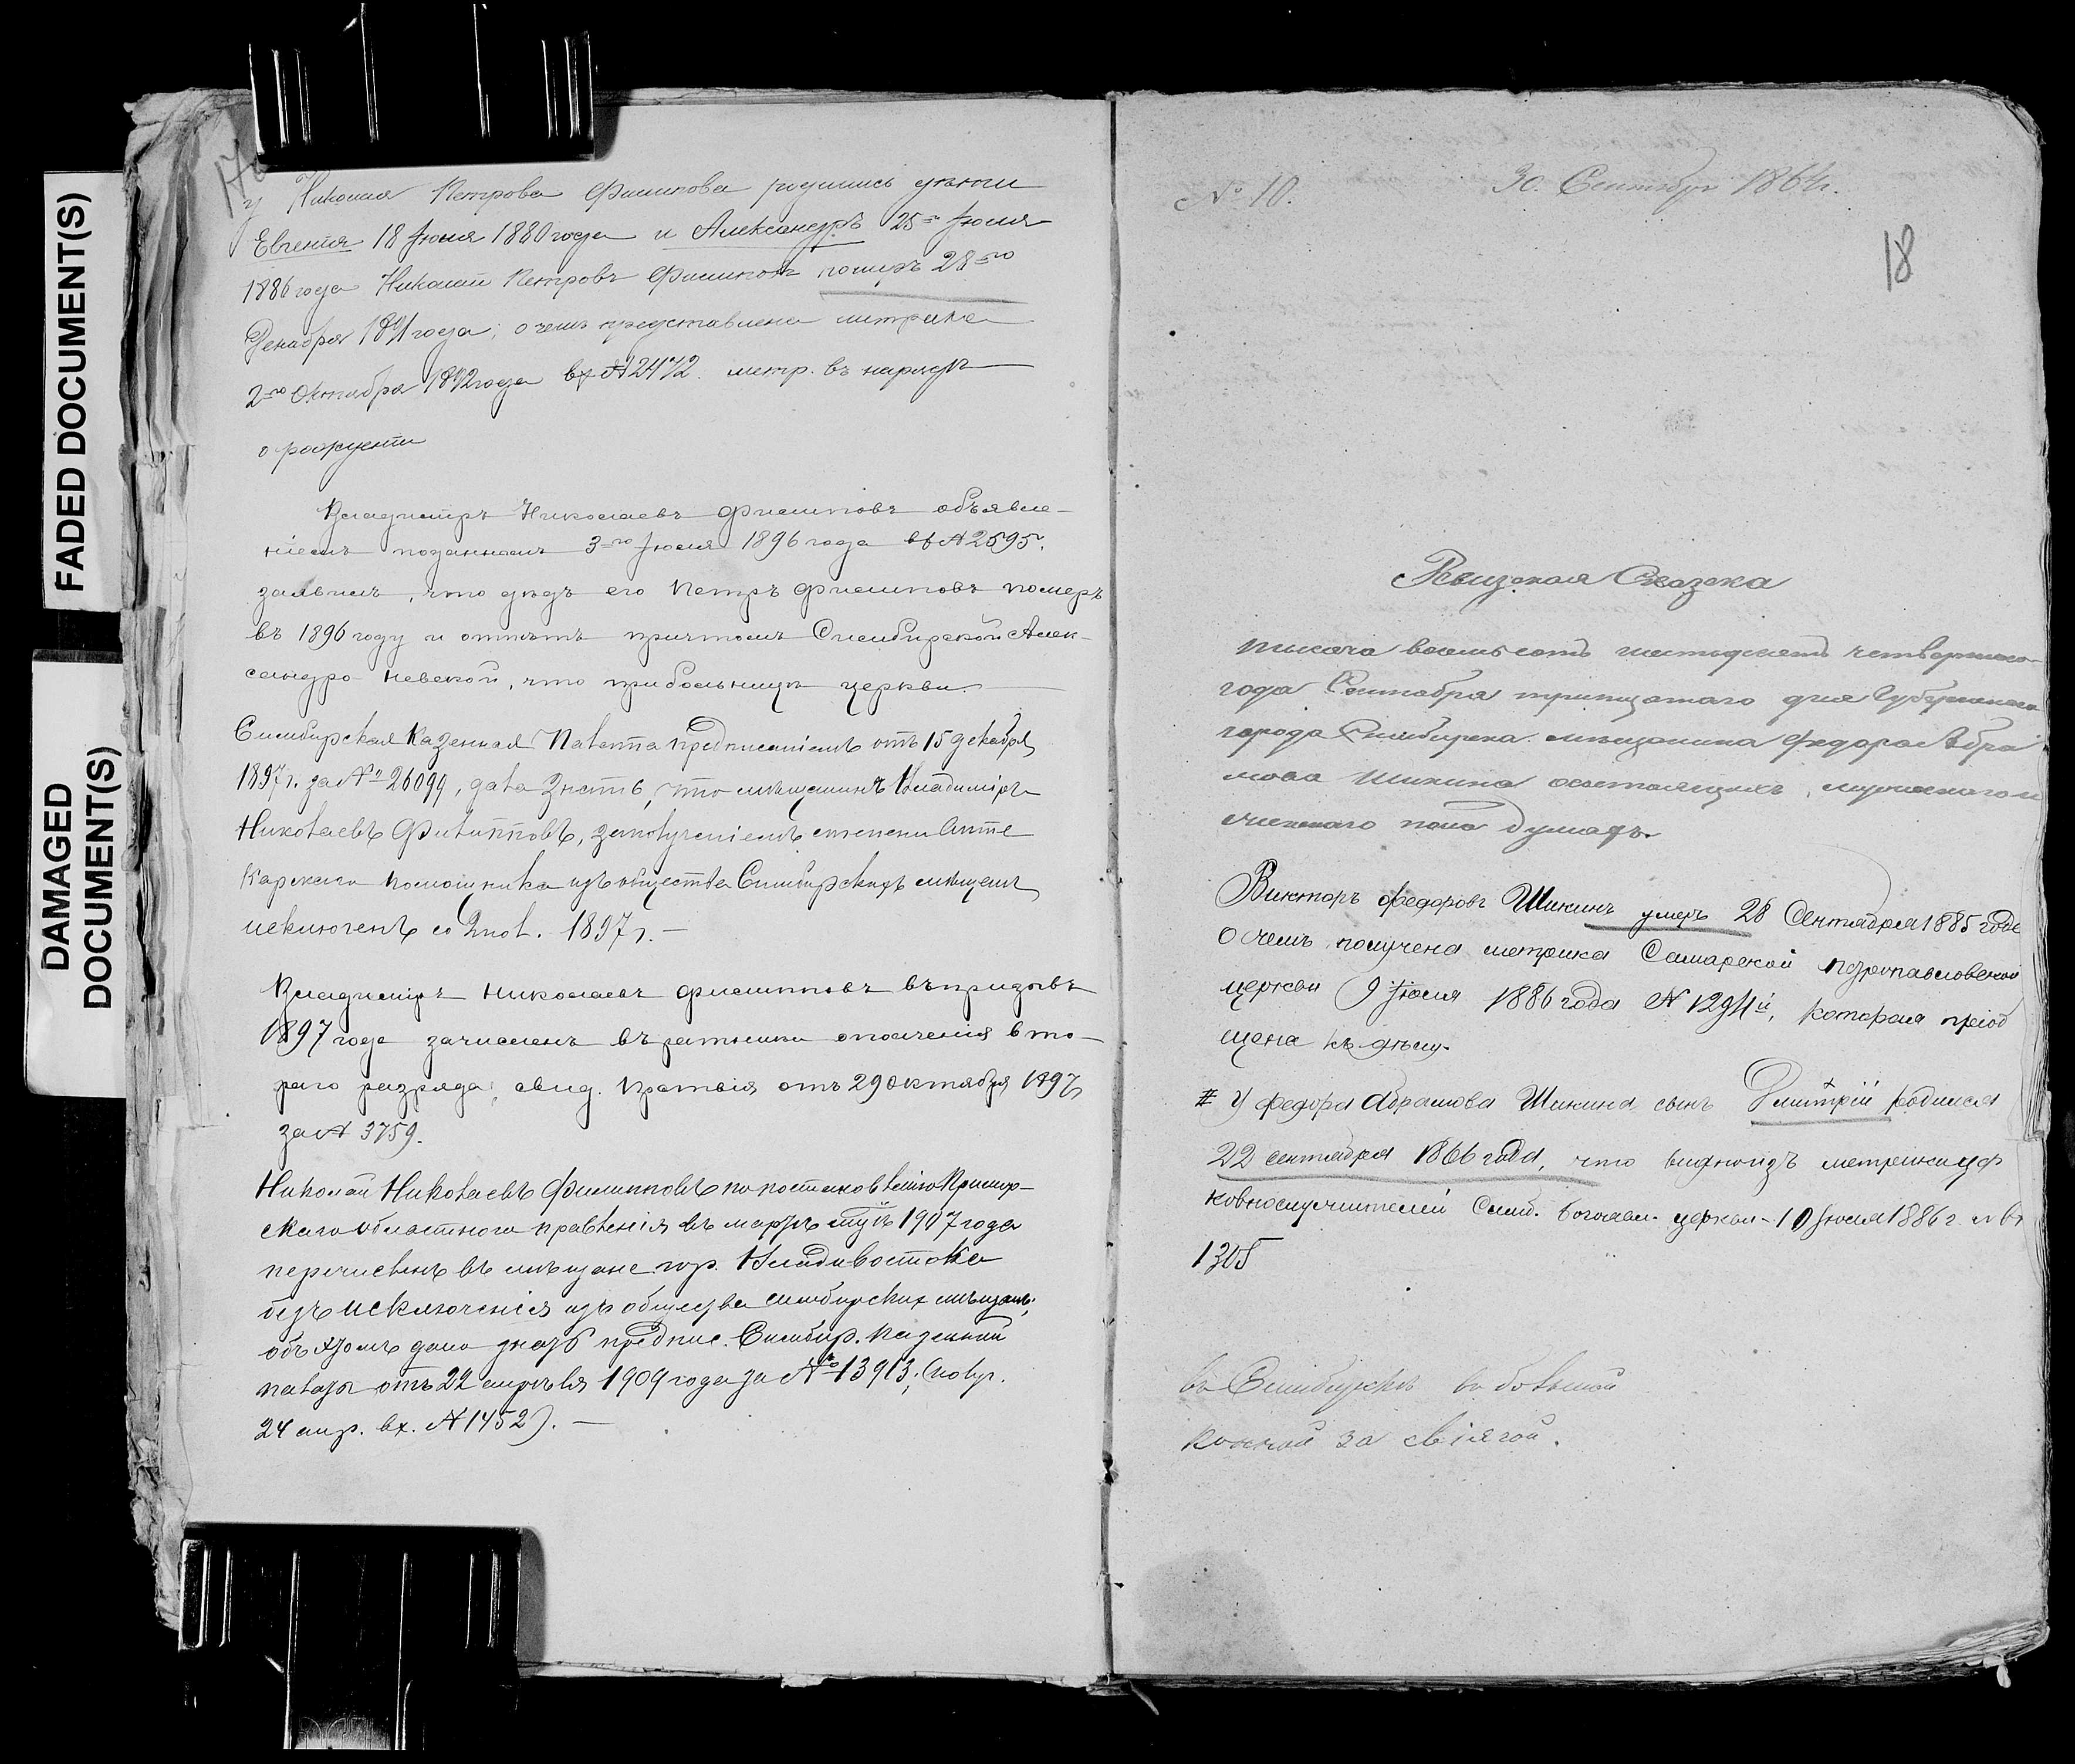 FADED DOCUMENT(S)
DAMAGED
DOCUMENT(S)
У Николая Петрова Филипова родились
Евгения 18 Июля 1880 года и Александръ 25го Июля
1886 года Николай Петровъ Филиповъ померъ 28го
Декабря 1891 года; о чемъ представлена метрика
2го Октября 1892 года вх № 2472 метр. въ нарядѣ
о рожденіи
Владиміръ Николаевъ Филипповъ объявле-
ніемъ поданномъ 3го Июля 1896 года вх № 2595.
заявилъ, что дѣдъ его Петръ Филипповъ померъ
въ 1896 году и отпѣтъ причтомъ Симбирской Алек-
сандро Невской, что при больницѣ церкви.
Симбирская Казенная Палата предписаніемъ отъ 15 декабря
1897 г. за № 26099, дала знать, что мѣщанинъ Владиміръ
Николаевъ Филипповъ, за полученіемъ степени Апте
карскаго помощника изъ общества Симбирскихъ мѣщанъ
исключенъ со 2 пол. 1897 г.
Владиміръ Николаевъ Филипповъ въ призывъ
1897 года зачисленъ въ ратники ополченія вто-
раго разряда; свид. Прсутвія отъ 29 Октября 1897
за № 3759.
Николай Николаевъ Филипповъ по постановленію Примор-
скаго областного правленія въ мартѣ 1907 года
перечисленъ въ мѣщане гор. Владивостока
безъ исключенія изъ общества симбирскихъ мѣщанъ;
объ этомъ дано знать предпис. Симбир. Казенной
палаты отъ 22 апрѣля 1909 года за № 13913; (получ.
24 апр. вх. № 1452).
№ 10. 30. Сентября 1864 г.
18
Ревизская Сказка
тысяча восемьсотъ шестьдесятъ четвертаго
года Сентября тридцатаго дня Губернскаго
города Симбирска мѣщанина Федора Абра
мова Шикина состоящихъ, мужескаго и
женскаго пола душахъ.
Викторъ Федоровъ Шикинъ умеръ 28 Сентября 1885 года
о чемъ получена метрика Самарской Петропавловской
церкви 9 Июля 1886 года № 1294й, которая пріоб
щена къ дѣлу.
# У Федора Абрамова Шикина сынъ Дмитрій родился
22 сентября 1866 года, что видно изъ метрики цер
ковнослужителей Симб. Богоявл. церкви 10 Июля 1886 г. № вх
1305
въ Симбирскѣ въ большой
Конной за свіягой.